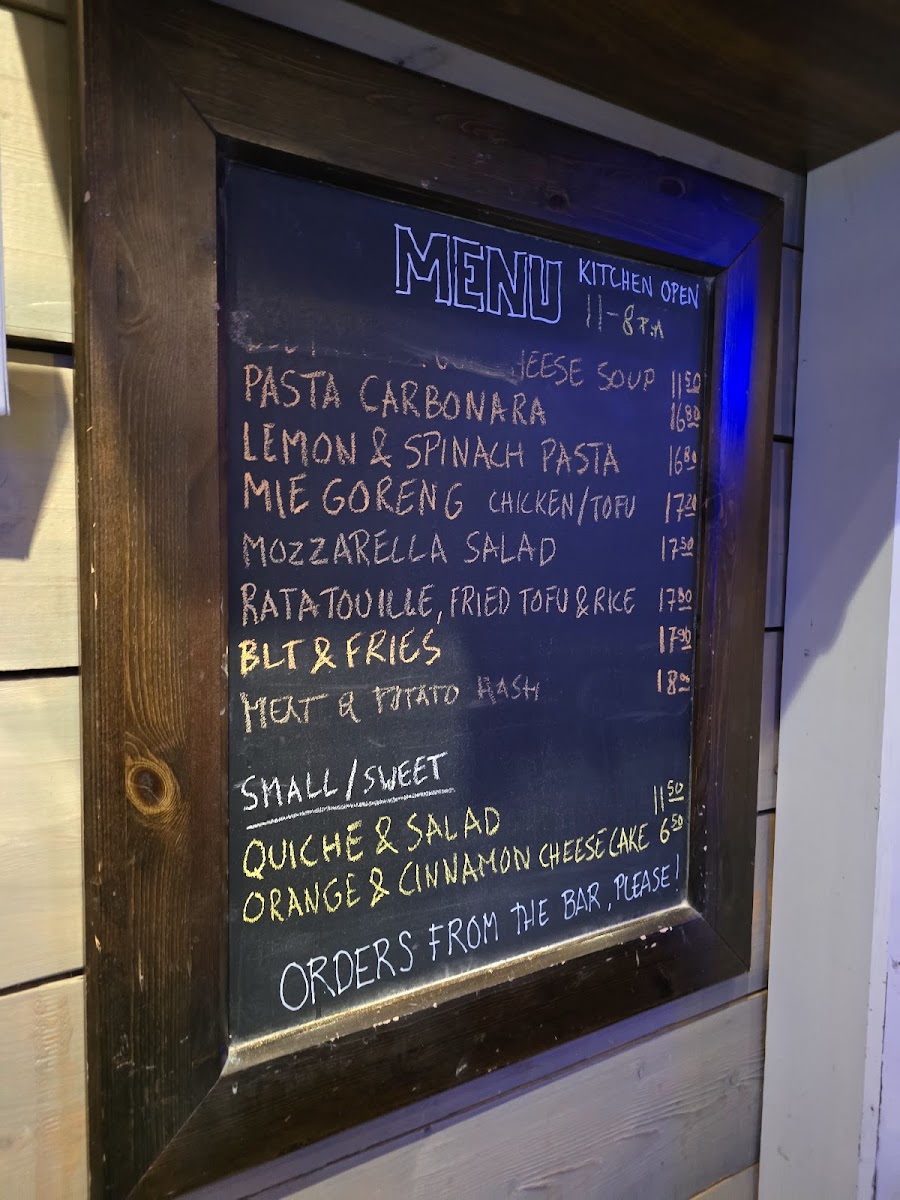 MENU KITCHEN OPEN
11-8 P.M
SOUP 11 50
PASTA CARBONARA 16 80
LEMON & SPINACH PASTA 16 80
MIE GORENG CHICKEN/TOFU 17 20
MOZZARELLA SALAD 17 50
RATATOUILLE, FRIED TOFU & RICE 17 80
BLT & FRIES 17 90
MEAT & POTATO HASH 18 90
SMALL/SWEET
QUICHE & SALAD 11 50
ORANGE & CINNAMON CHEESECAKE 6 50
ORDERS FROM THE BAR, PLEASE!